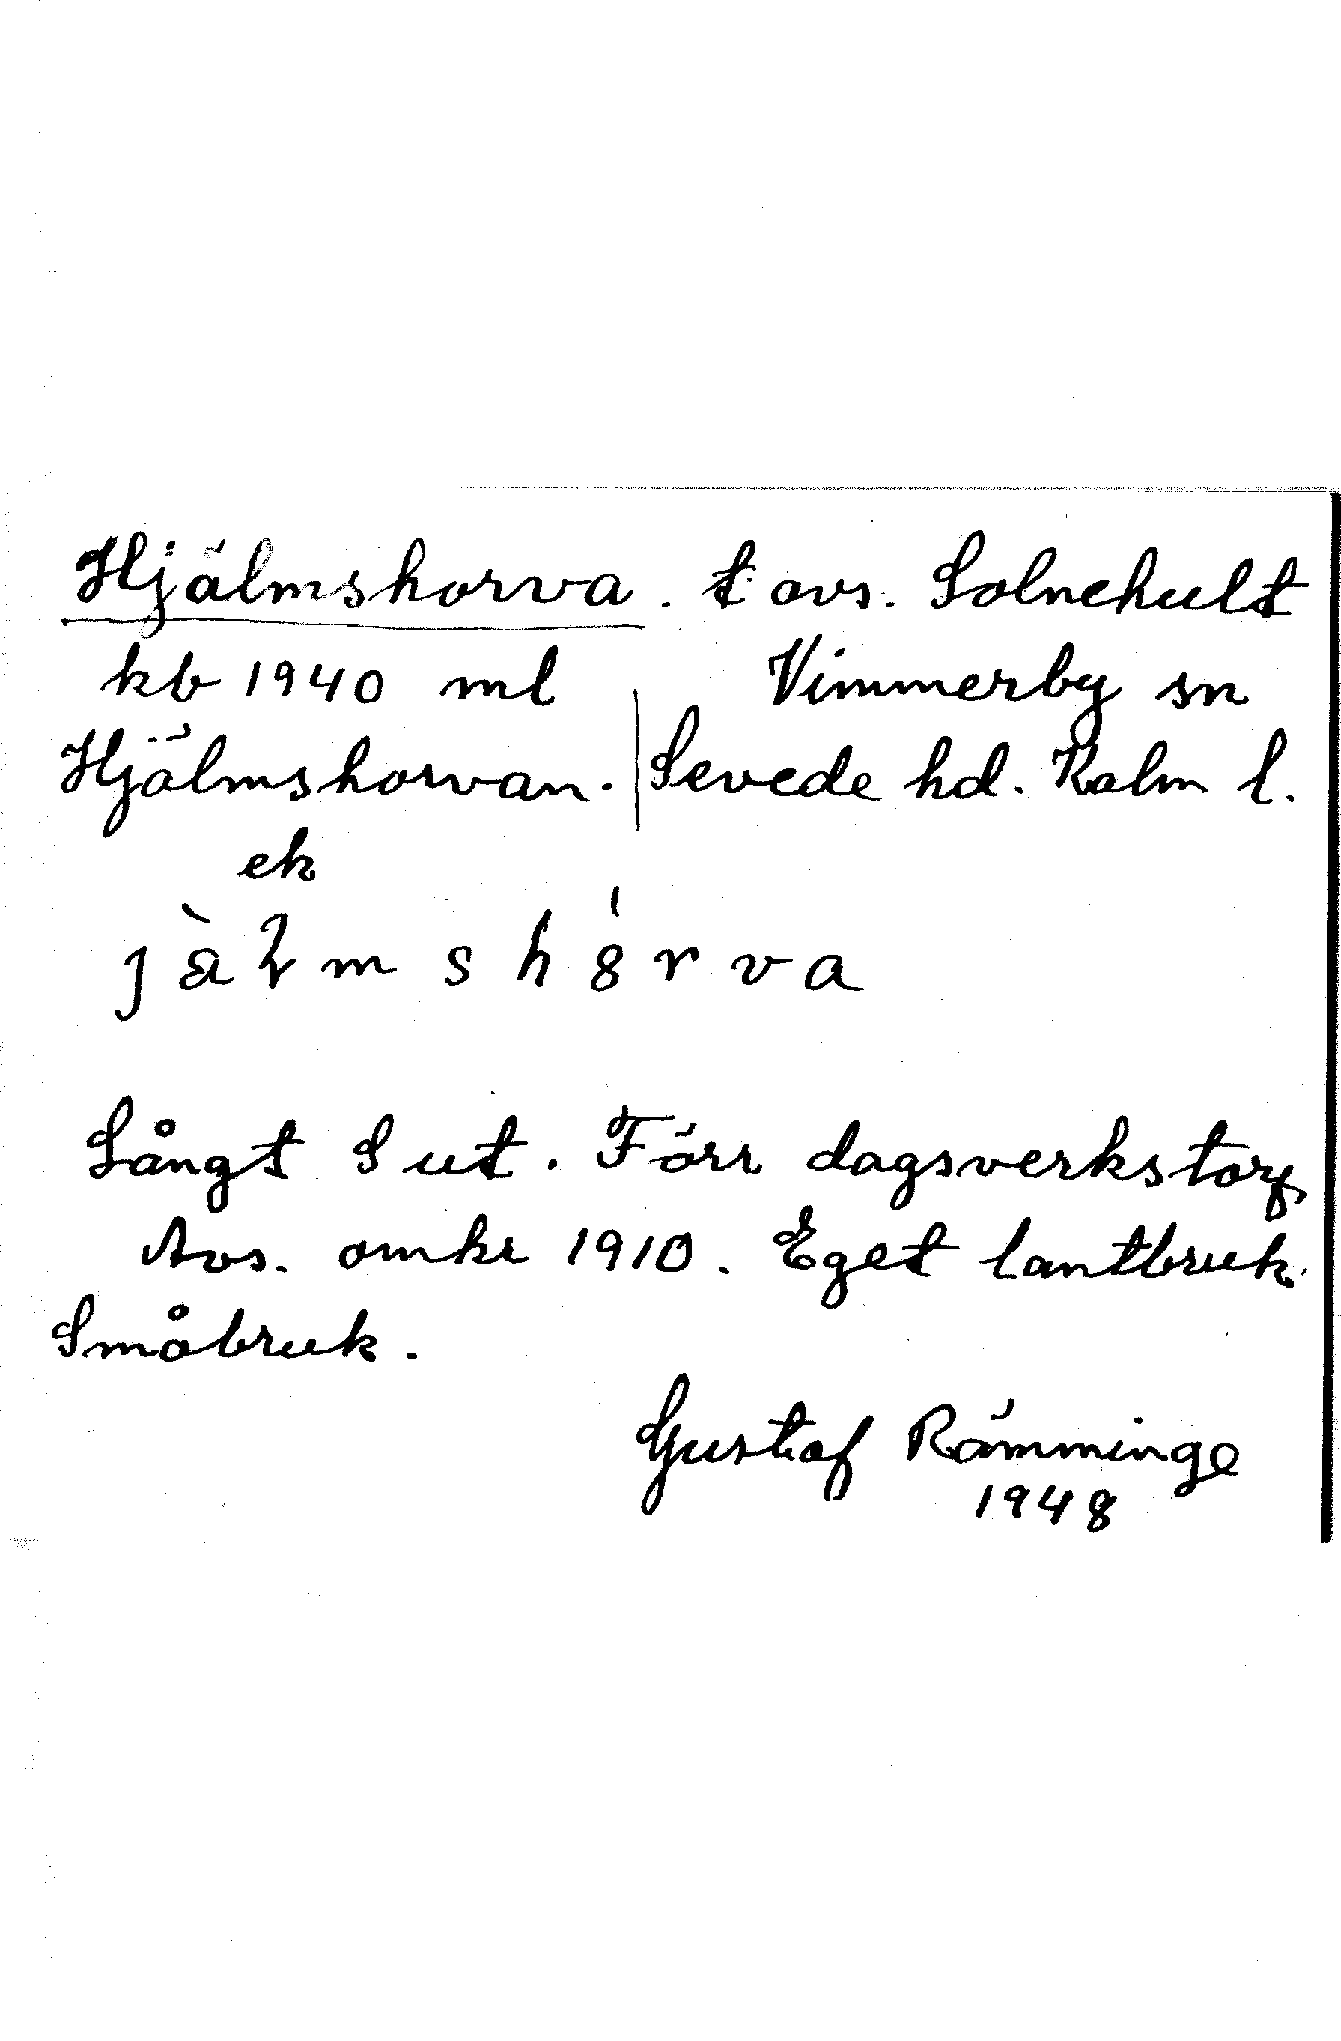 Hjälmshorva. t avs. Solnehult
kb 1940 ml Vimmerby sn
Hjälmshorvan. Sevede hd. Kalm l.
ek
jälmshorva
Långt S ut. Förr dagsverkstorp
Avs. omkr 1910. Eget lantbruk.
Småbruk.
Gustaf Rämminge
1948